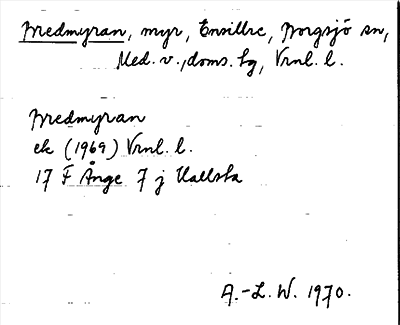 Bredmyran, myr, Ensillre, Borgsjö sn,
Med. v., doms. hg, Vrnl. l.
Bredmyran
ek (1969) Vrnl. l.
17 F Ånge 7 j Hallsta
A.-L. W. 1970.